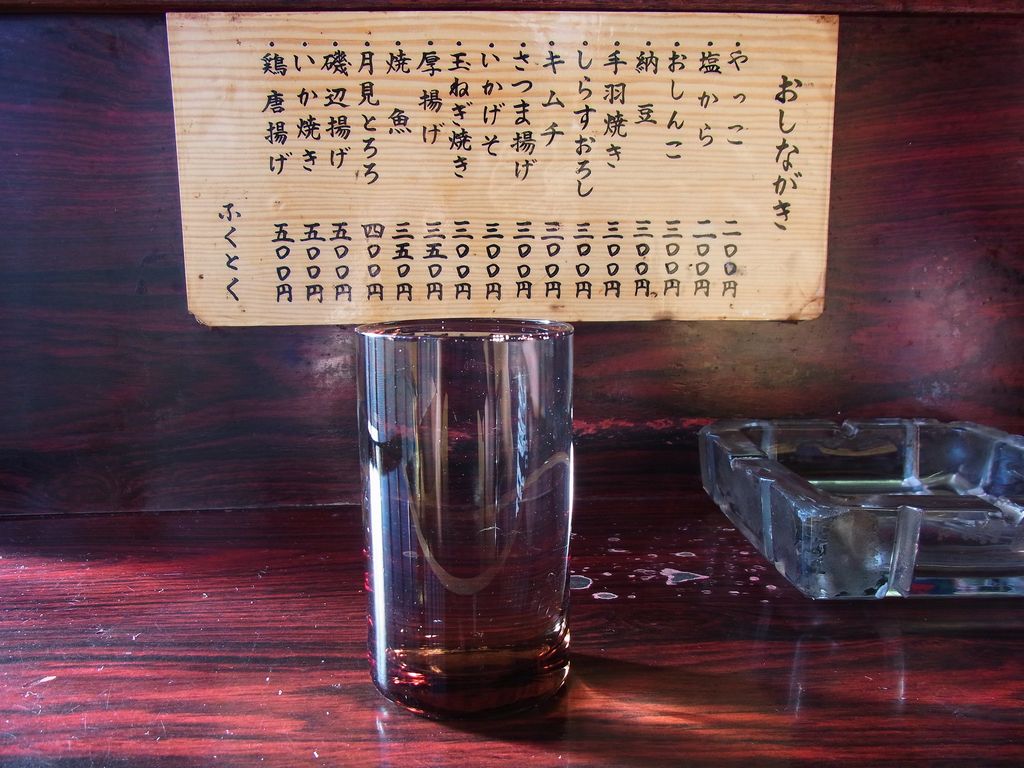 おしながき
・やっこ 二〇〇円
・塩から 二〇〇円
・おしんこ 三〇〇円
・納豆 三〇〇円
・手羽焼き 三〇〇円
・しらすおろし 三〇〇円
・キムチ 三〇〇円
・さつま揚げ 三〇〇円
・いかげそ 三〇〇円
・玉ねぎ焼き 三〇〇円
・厚揚げ 三五〇円
・焼魚 三五〇円
・月見とろろ 四〇〇円
・磯辺揚げ 五〇〇円
・いか焼き 五〇〇円
・鶏唐揚げ 五〇〇円
ふくとく